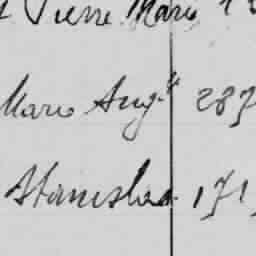 Pierre Marie 1
Marie Aug.te 287
Stanislas 171